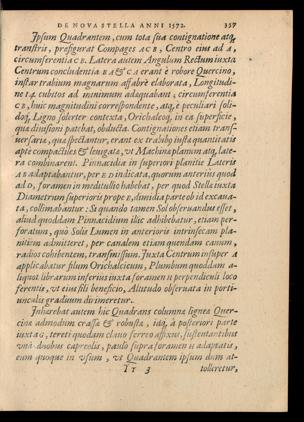 DE NOVA STELLA ANNI 1572. 357
Ipsum Quadrantem, cum tota sua contignatione atq,
transtris, præfigurat Compages A C B, Centro eius ad A,
circumferentia C B. Latera autem Angulum Rectum iuxta
Centrum concludentia B A & C A erant è robore Quercino,
instar trabium magnarum affabrè elaborata, Longitudi-
ne 14. cubitos ad minimum adæquabant, circumferentia
C B, huic magnitudini correspondente, atq, è peculiari soli-
doq, Ligno solerter contexta, Orichalcoq, in ea superficie,
qua diuisioni patebat, obducta. Contignationes etiam trans-
uersariæ, quæ spectantur, erant ex trabibus iusta quantitate
aptè compactiles & leuigatæ, vt Machinæ planum atq, late-
ra combinarent. Pinnacidia in superiori planitie Lateris
A B adaptabantur, per E D indicata, quorum anteriùs quod
ad D, foramen in meditullio habebat, per quod Stella iuxta
Diametrum superioris propè E, dimidia parte ob id excaua-
ta, collimabantur: Si quando tamen Sol obseruandus esset,
aliud quoddam Pinnacidium illic adhibebatur, etiam per-
foratum, quò Solis Lumen in anterioris intrinsecam pla-
nitiem admitteret, per canalem etiam quendam cauum,
radios cohibentem, transmissum. Iuxta Centrum insuper A
applicabatur filum Orichalcicum, Plumbum quoddam a-
liquot librarum inferiùs iuxta foramen H perpendiculi loco
ferentis, vt eius fili beneficio, Altitudo obseruata in porti-
unculis graduum dirimeretur.
Inhærebat autem hic Quadrans columnæ ligneæ Quer-
cinæ admodum crassæ & robustæ, idq, à posteriori parte
iuxta G, tereti quodam clauo ferreo affixus, sustentantibus
vnà duobus capreolis, paulò supra foramen H adaptatis,
eum quoque in vsum, vt Quadrantem ipsum dum at-
Tt 3 tolleretur,